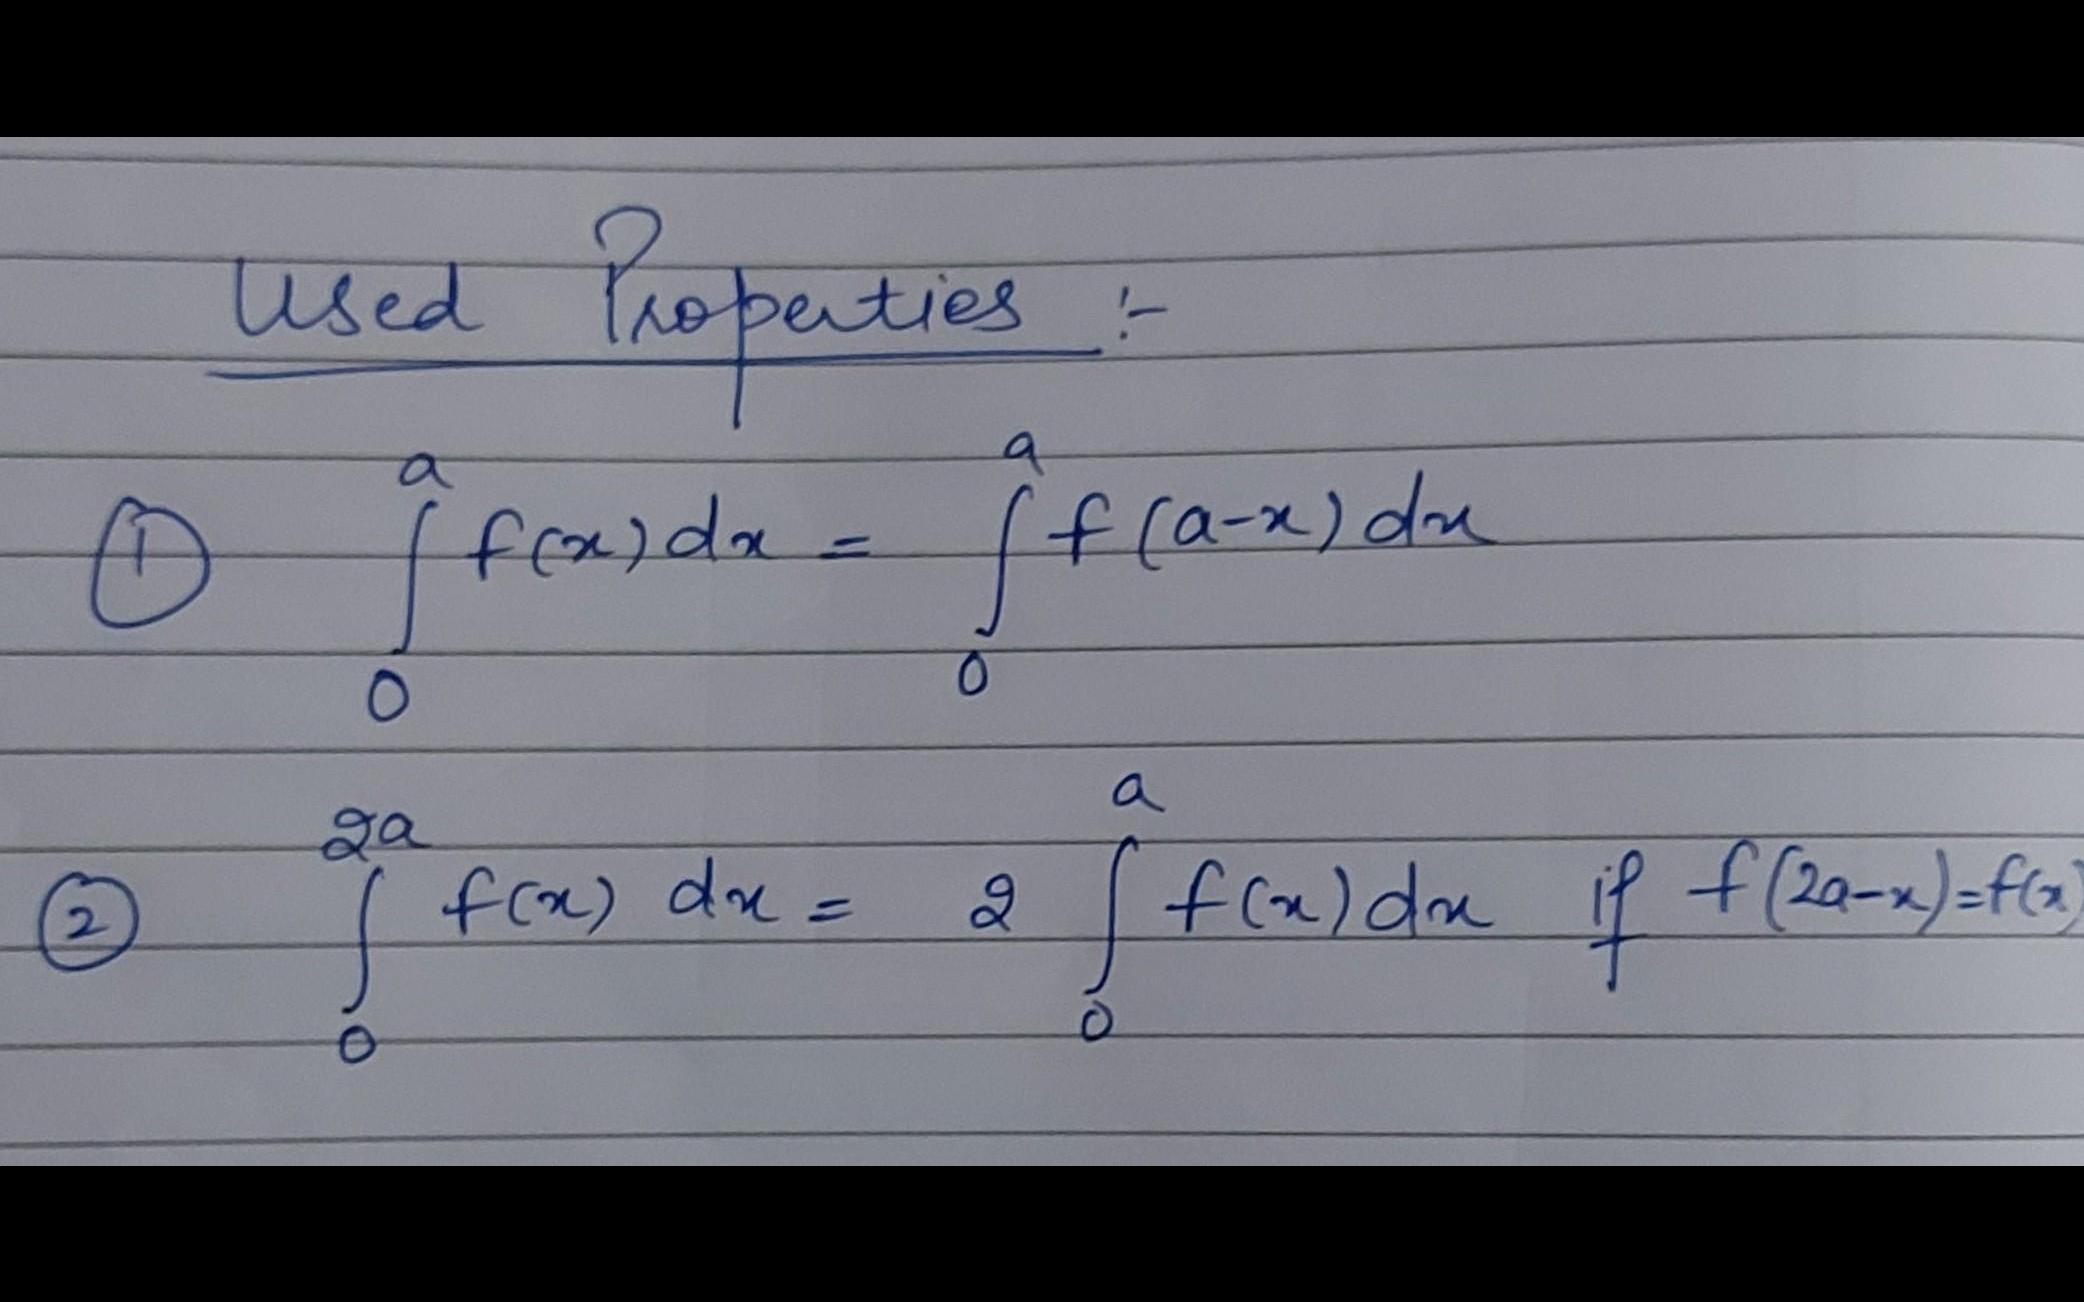 Used Properties :-
① ∫₀ᵃ f(x) dx = ∫₀ᵃ f(a-x) dx
② ∫₀²ᵃ f(x) dx = 2 ∫₀ᵃ f(x) dx if f(2a-x)=f(x)